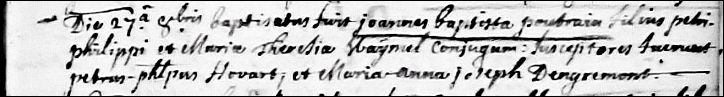 Die 27ᵃ 8bris baptisatus fuit joannes baptista poutrain filius petri-
philippi et Mariæ Theresiæ Waymel conjugum: susceptores fuerunt,
petrus-phlpus Hovart, et Maria-anna joseph Dengremont.